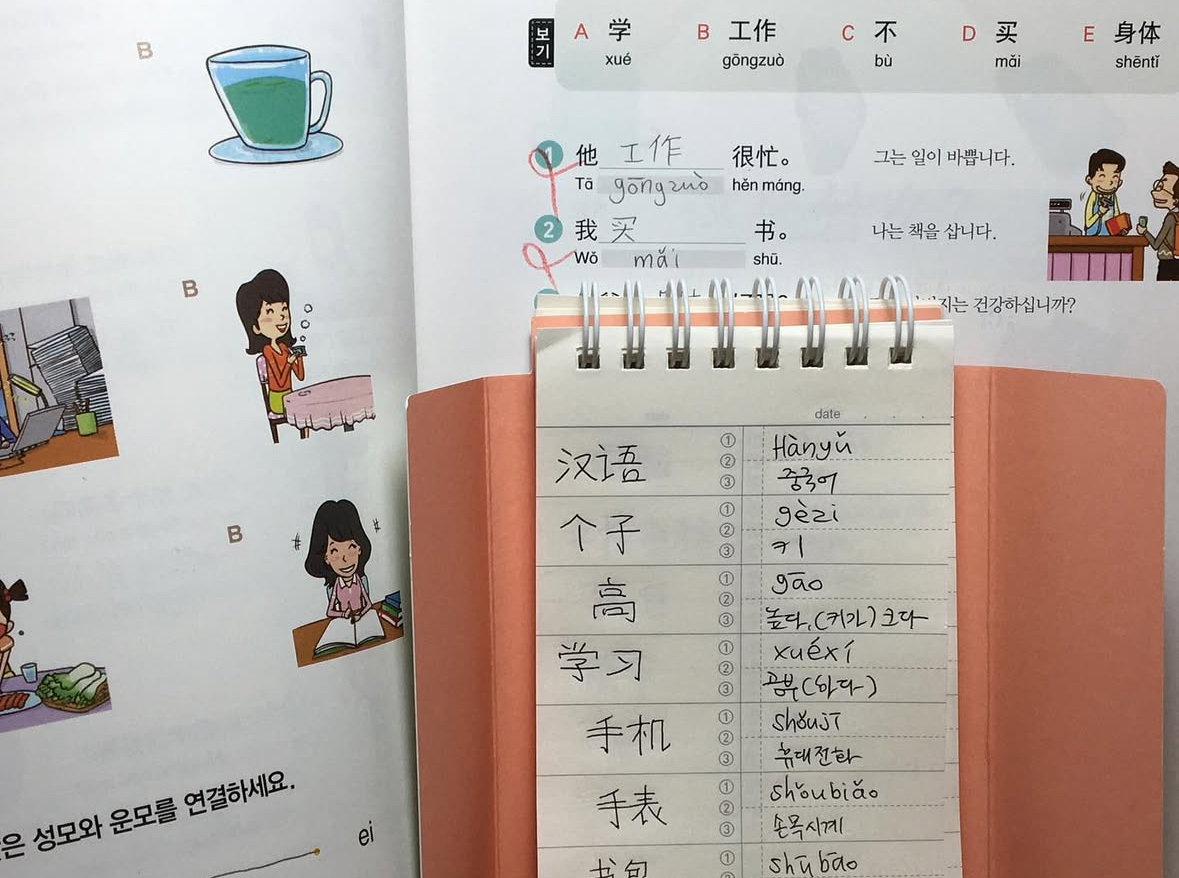 B
B
B
은 성모와 운모를 연결하세요.
ei
보기
A 学 B 工作 C 不 D 买 E 身体
xué gōngzuò bù mǎi shēntǐ
1 他 工作 很忙。 그는 일이 바쁩니다.
Tā gōngzuò hěn máng.
2 我 买 书。 나는 책을 삽니다.
Wǒ mǎi shū.
지는 건강하십니까?
date
汉语 ① Hànyǔ
②
③ 중국어
个子 ① gèzi
②
③ 키
高 ① gāo
②
③ 높다, (키가) 크다
学习 ① xuéxí
②
③ 공부(하다)
手机 ① shǒujī
②
③ 휴대전화
手表 ① shǒubiǎo
②
③ 손목시계
书包 ① shūbāo